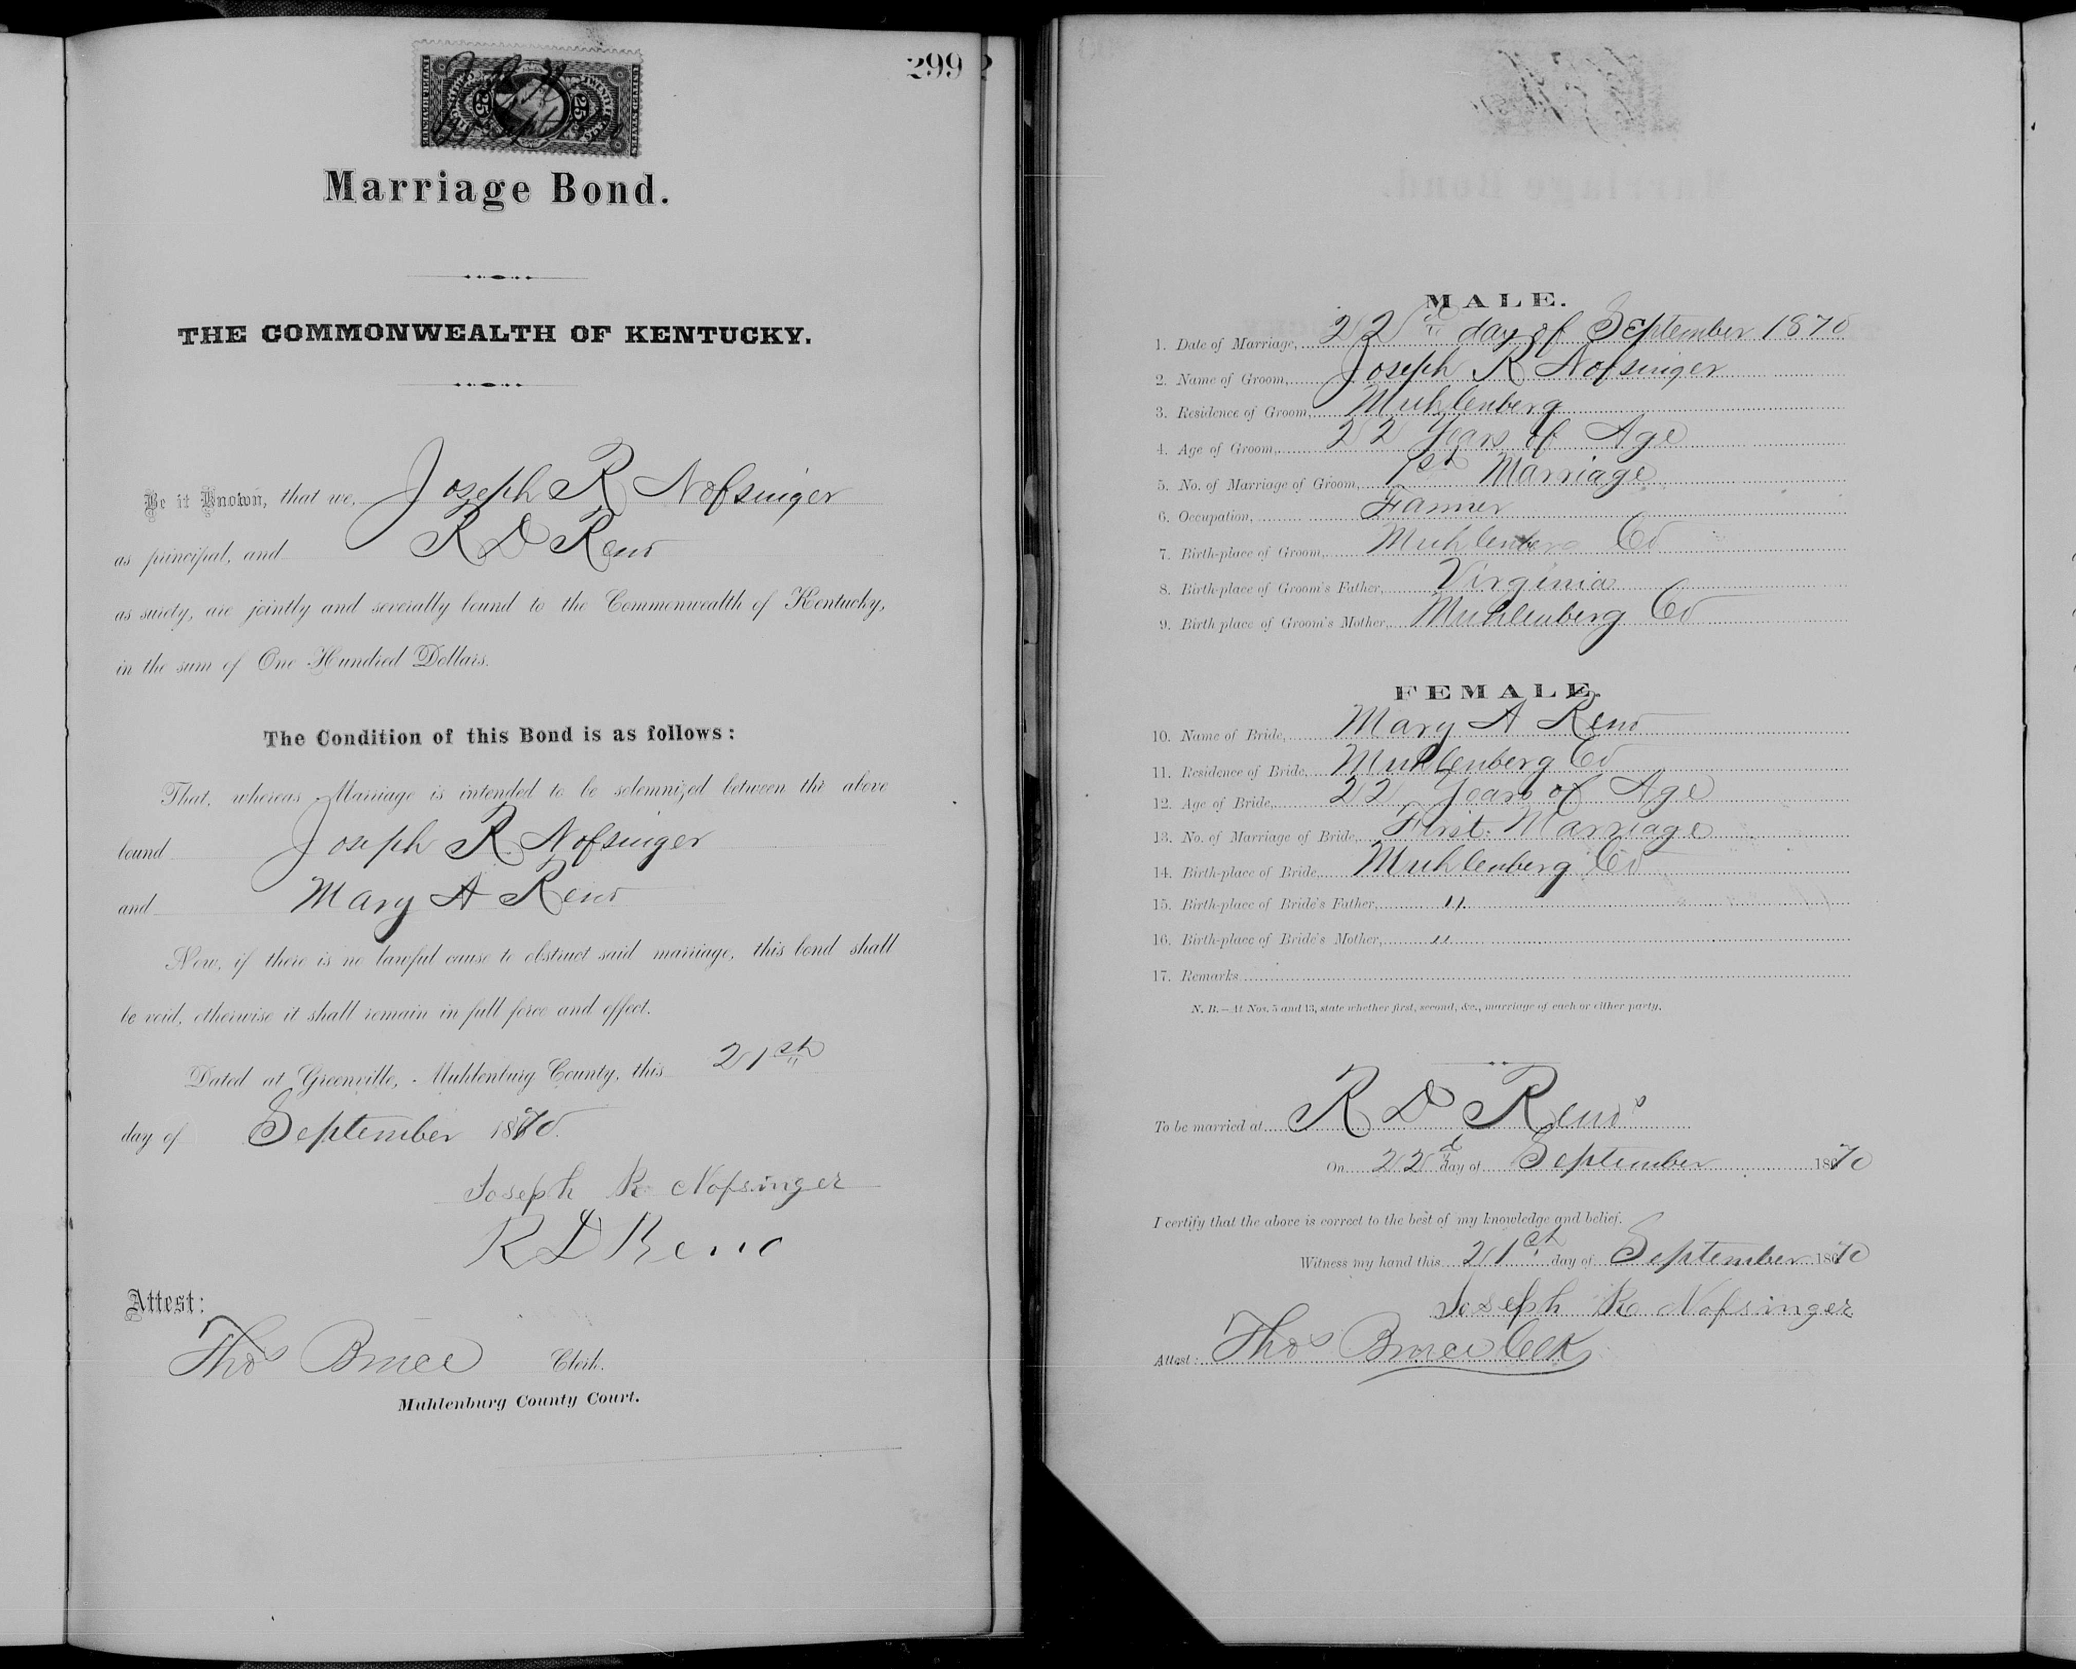 299
25 25
Marriage Bond.
THE COMMONWEALTH OF KENTUCKY.
Be it Known, that we, Joseph R Nofsinger
as principal, and R D Reno
as surety, are jointly and severally bound to the Commonwealth of Kentucky,
in the sum of One Hundred Dollars.
The Condition of this Bond is as follows:
That, whereas Marriage is intended to be solemnized between the above
bound Joseph R Nofsinger
and Mary A Reno
Now, if there is no lawful cause to obstruct said marriage, this bond shall
be void, otherwise it shall remain in full force and effect.
Dated at Greenville, Muhlenburg County, this 21st
day of September 1870.
Joseph R Nofsinger
R D Reno
Attest:
Thos Bruce Clerk.
Muhlenburg County Court.
MALE.
1. Date of Marriage, 22nd day of September 1870
2. Name of Groom, Joseph R Nofsinger
3. Residence of Groom, Muhlenberg
4. Age of Groom, 22 Years of Age
5. No. of Marriage of Groom, 1st Marriage
6. Occupation, Farmer
7. Birth-place of Groom, Muhlenberg Co
8. Birth-place of Groom's Father, Virginia
9. Birth place of Groom's Mother, Muhlenberg Co
FEMALE.
10. Name of Bride, Mary A Reno
11. Residence of Bride, Muhlenberg Co
12. Age of Bride, 22 Years of Age
13. No. of Marriage of Bride, First Marriage
14. Birth-place of Bride Muhlenberg Co
15. Birth-place of Bride's Father, "
16. Birth-place of Bride's Mother, "
17. Remarks
N. B.—At Nos. 5 and 13, state whether first, second, &c., marriage of each or either party.
To be married at R D Renos
On 22d day of September 1870
I certify that the above is correct to the best of my knowledge and belief.
Witness my hand this 21st day of September 1870
Joseph R Nofsinger
Attest: Thos Bruce Clk